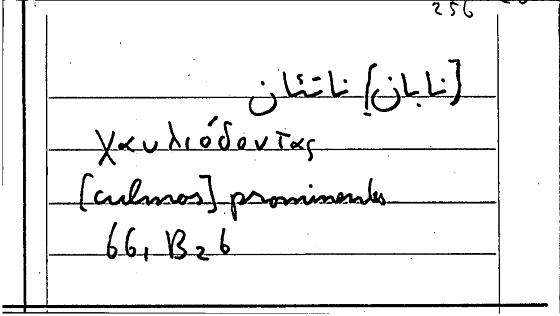 256
[نابان] ناتئان
χαυλιόδοντας
[culmos] prominentes
66, B26